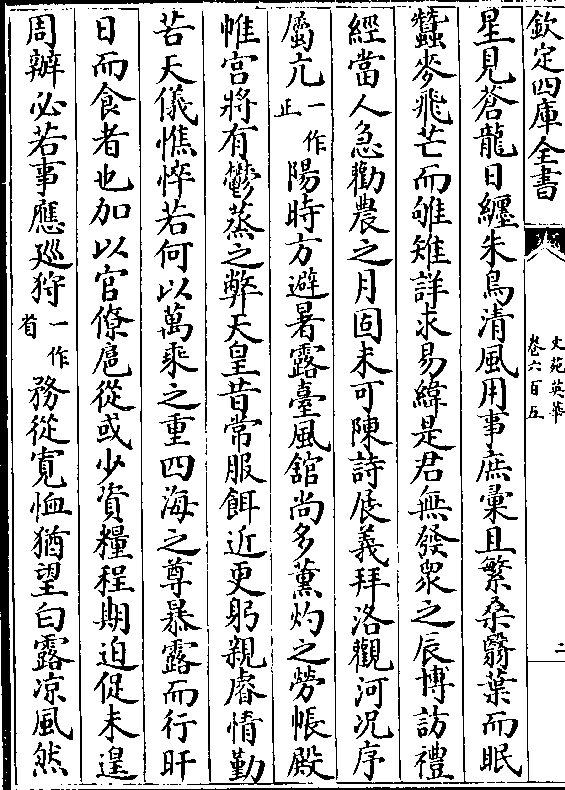 欽定四庫全書
文苑英華
卷六百五
二
星見蒼龍日纏朱鳥清風用事庶彚且繁桑翳葉而眠
蠶麥飛芒而雊雉詳求易緯是君無發衆之辰博訪禮
經當人急勸農之月固未可陳詩展義拜洛觀河况序
屬亢一作正陽時方避暑露臺風舘尚多薰灼之勞帳殿
帷宮將有鬱蒸之弊天皇昔常服餌近更躬親睿情勤
苦天儀憔悴若何以萬乘之重四海之尊暴露而行旰
日而食者也加以官僚扈從或少資糧程期迫促未遑
周辦必若事應廵狩一作省務從寛恤猶望白露凉風然